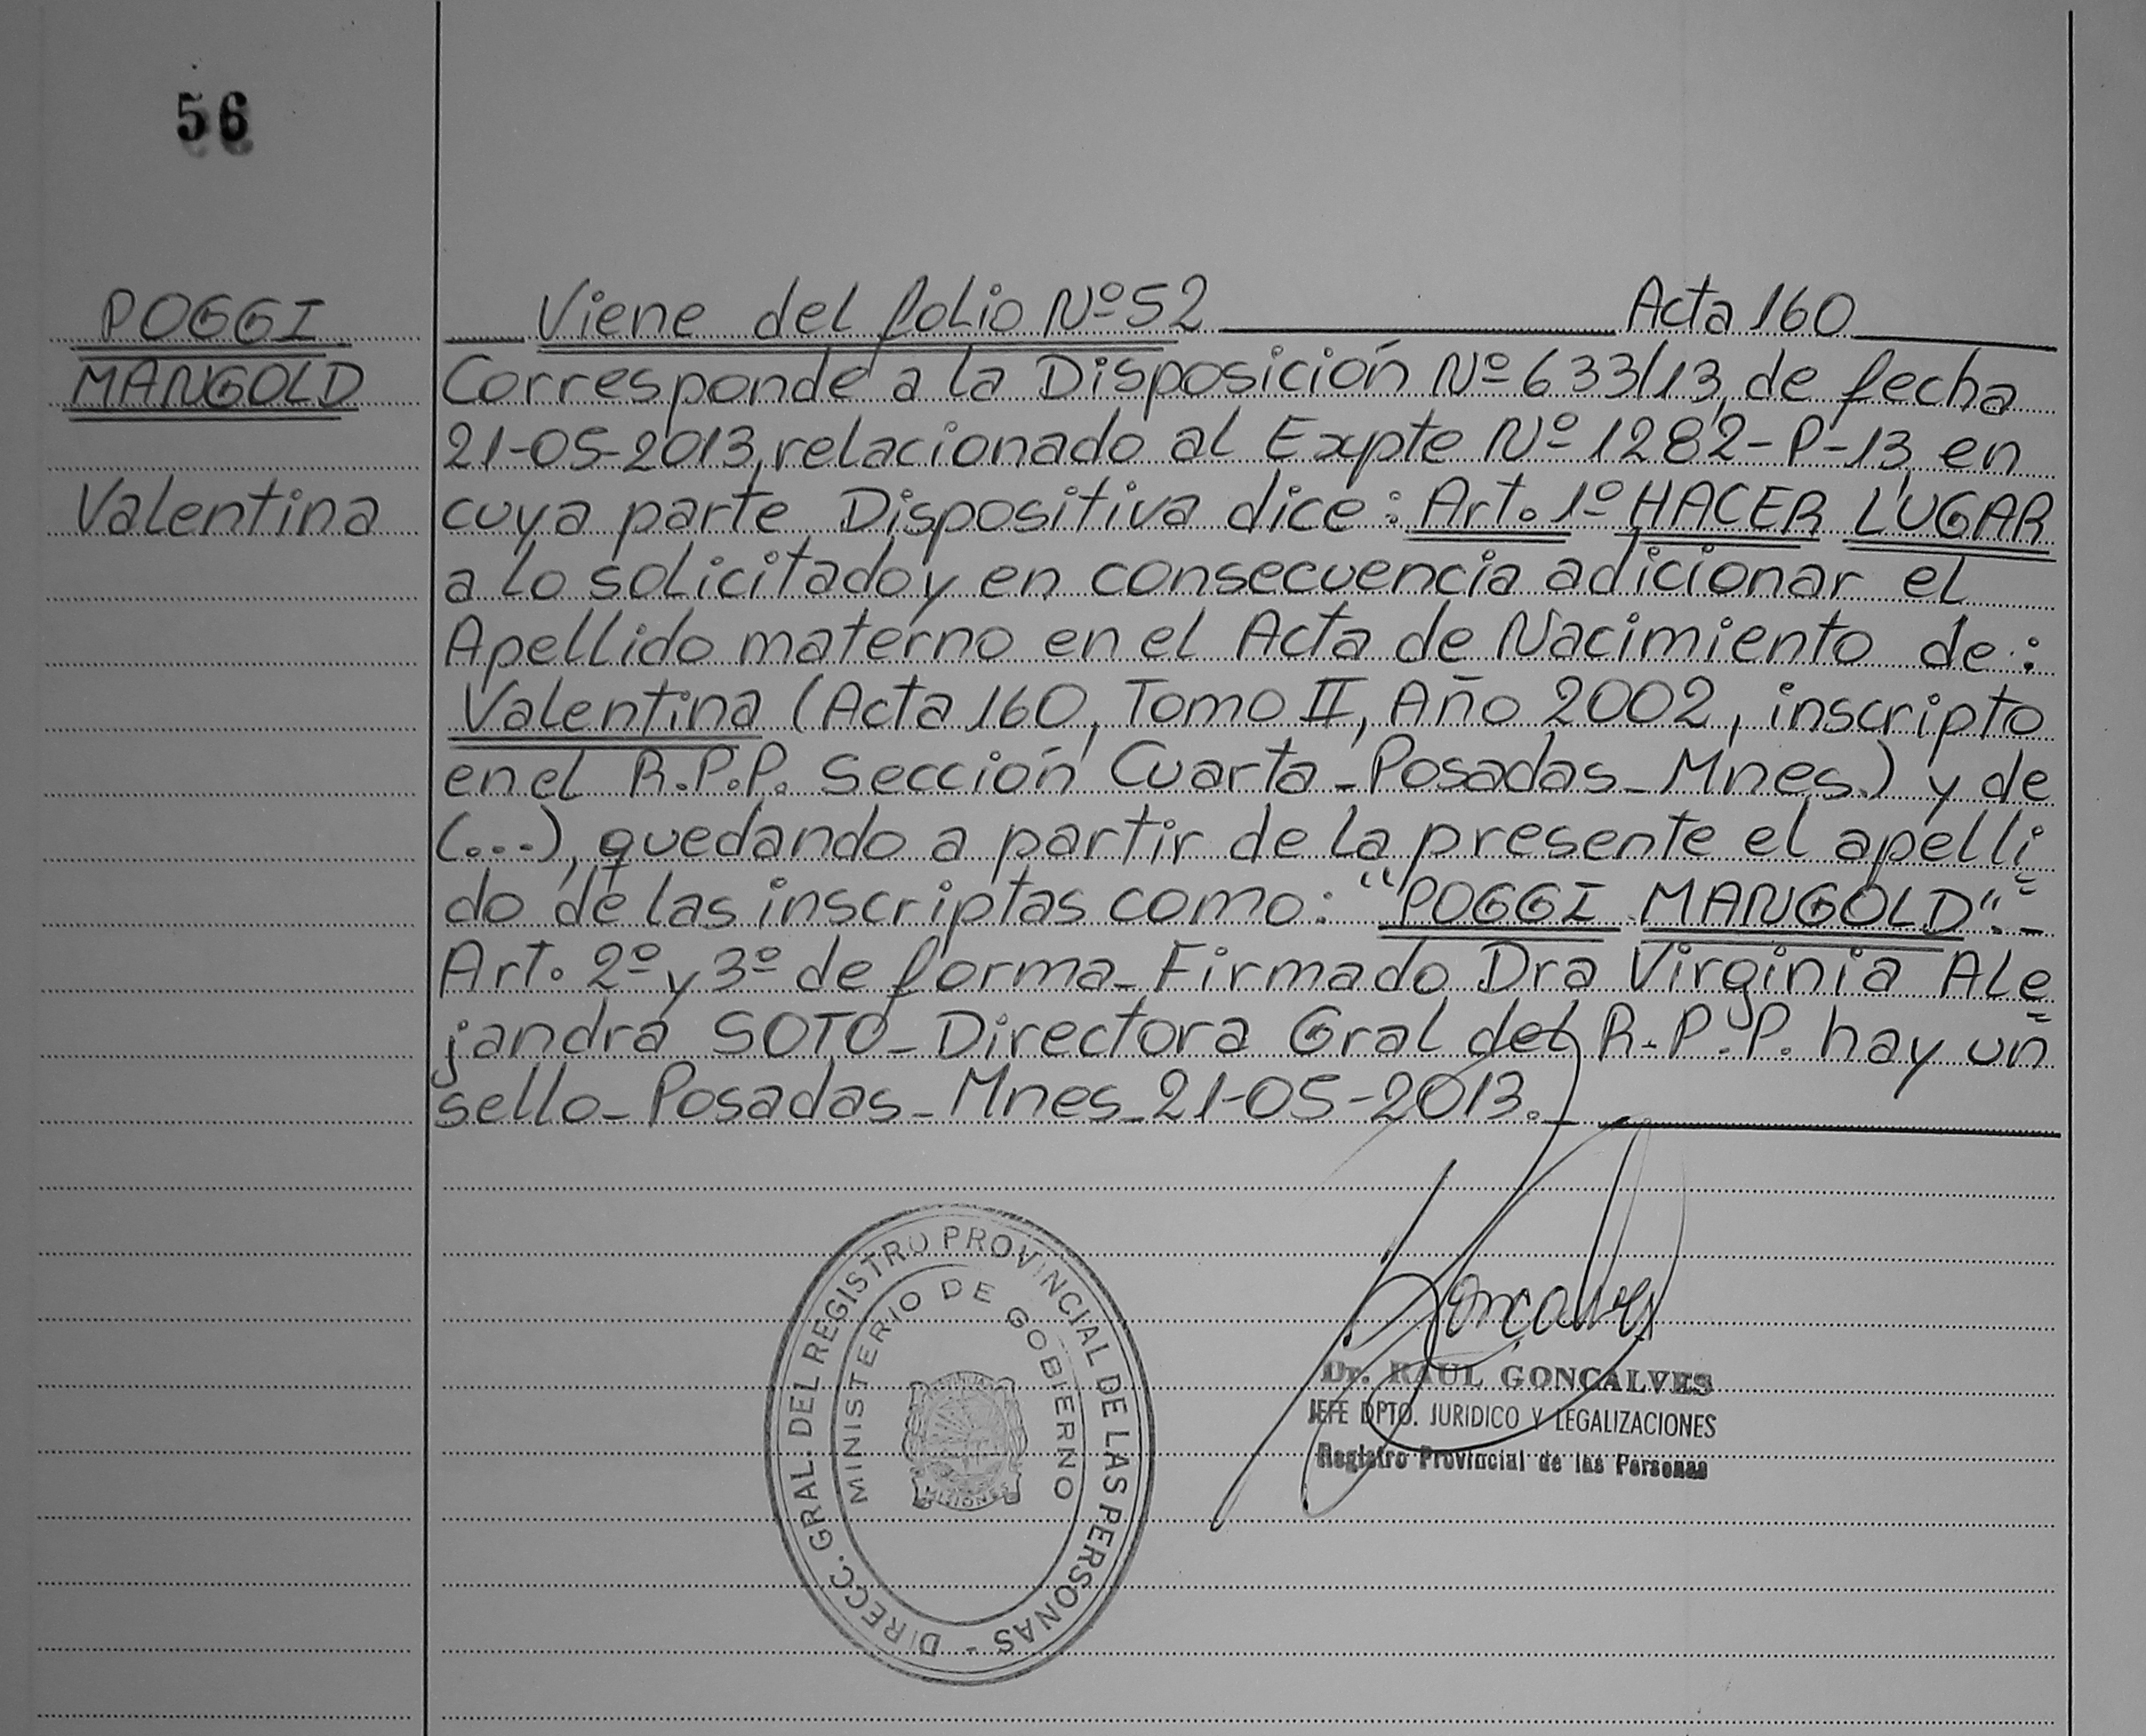 56
POGGI
MANGOLD
Valentina
Viene del folio Nº 52 Acta 160
Corresponde a la Disposición Nº 633/13, de fecha
21-05-2013, relacionado al Expte Nº 1282-P-13, en
cuya parte Dispositiva dice: Art. 1º HACER LUGAR
a lo solicitado y en consecuencia adicionar el
Apellido materno en el Acta de Nacimiento de:
Valentina (Acta 160, Tomo II, Año 2002, inscripto
en el R.P.P. Sección Cuarta - Posadas - Mnes.) y de
(...), quedando a partir de la presente el apelli=
do de las inscriptas como: "POGGI MANGOLD".-
Art. 2º y 3º de forma - Firmado Dra Virginia Ale=
jandra SOTO - Directora Gral del R.P.P. hay un
sello - Posadas - Mnes - 21-05-2013.-
DIRECC. GRAL. DEL REGISTRO PROVINCIAL DE LAS PERSONAS -
MINISTERIO DE GOBIERNO
MISIONES
Goncalves
Dr. RAUL GONCALVES
JEFE DPTO. JURIDICO Y LEGALIZACIONES
Registro Provincial de las Personas